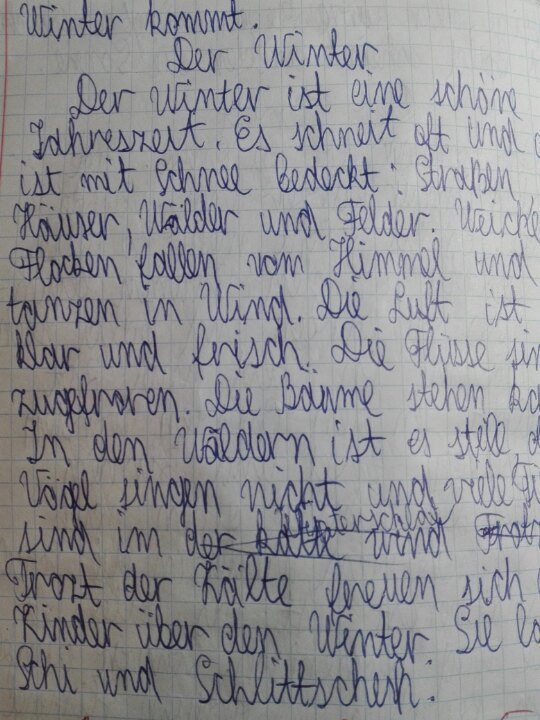 Winter kommt.
Der Winter
Der Winter ist eine schöne
Jahreszeit. Es schneit oft und
ist mit Schnee bedeckt: Straßen
Häuser, Wälder und Felder. Weiche
Flocken fallen vom Himmel und
tanzen in Wind. Die Luft ist
klar und frisch. Die Flüsse sin
zugefroren. Die Bäume stehen ka
In den Wäldern ist es stell, d
Vögel singen nicht und viele Ti
sind im Winterschlaf
Trozt der Kälte freuen sich
Kinder über den Winter. Sie la
Schi und Schlittschuh.